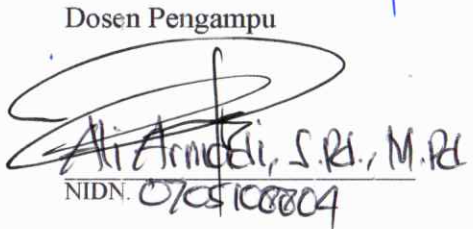 Dosen Pengampu
Ali Armadi, S.Pd., M.Pd
NIDN. 0705108804